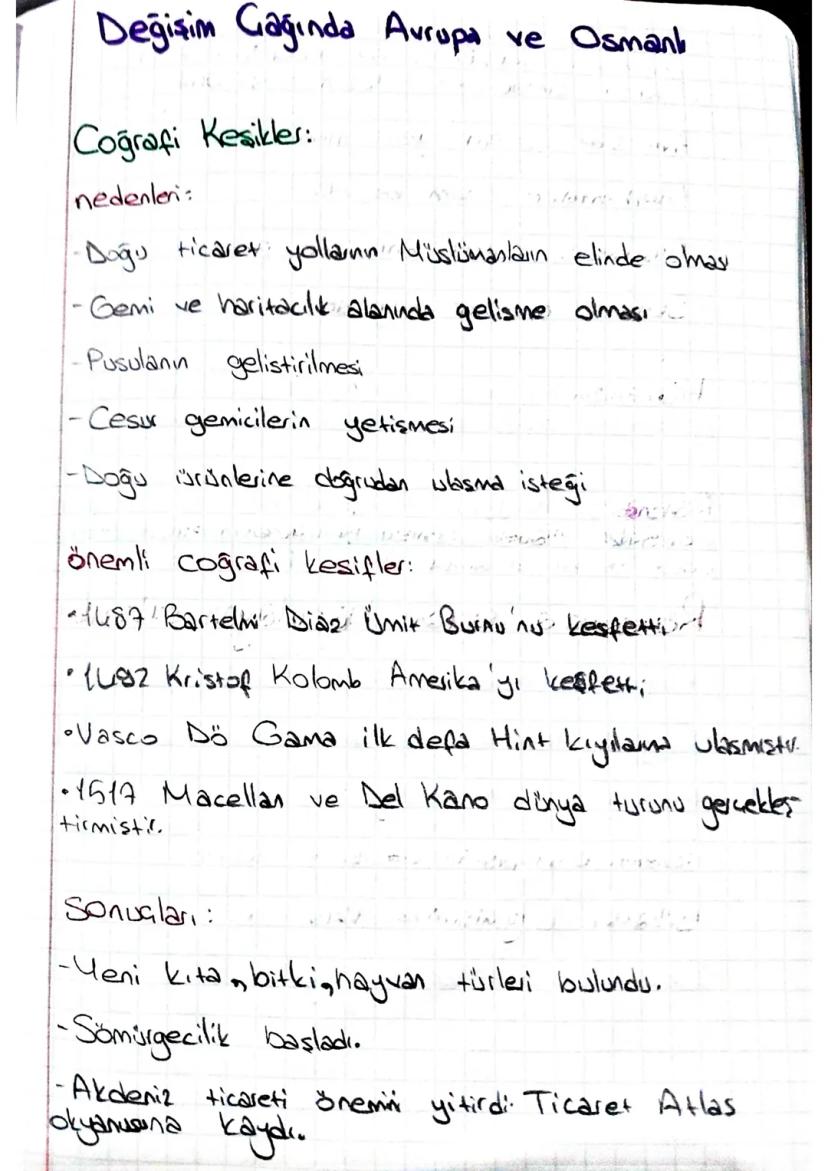 Değişim Çağında Avrupa ve Osmanlı
Coğrafi Keşikler:
nedenleri:
-Doğu ticaret yollarının Müslümanların elinde olması
-Gemi ve haritacılık alanında gelisme olması
-Pusulanın gelistirilmesi
-Cesur gemicilerin yetişmesi
-Doğu ürünlerine doğrudan ulasma isteği
önemli coğrafi kesifler:
•1487 Bartelmi Diaz Ümit Burnu'nu kesfetti
•1492 Kristof Kolomb Amerika'yı keşfetti
•Vasco Dö Gama ilk defa Hint kıyılarına ulasmıstır.
•1517 Macellan ve Del Kano dünya turunu gercekleş-
tirmistir.
Sonuçları:
-Yeni kıta, bitki, hayvan türleri bulundu.
-Sömürgecilik başladı.
-Akdeniz ticareti önemini yitirdi. Ticaret Atlas
okyanusuna kaydı.